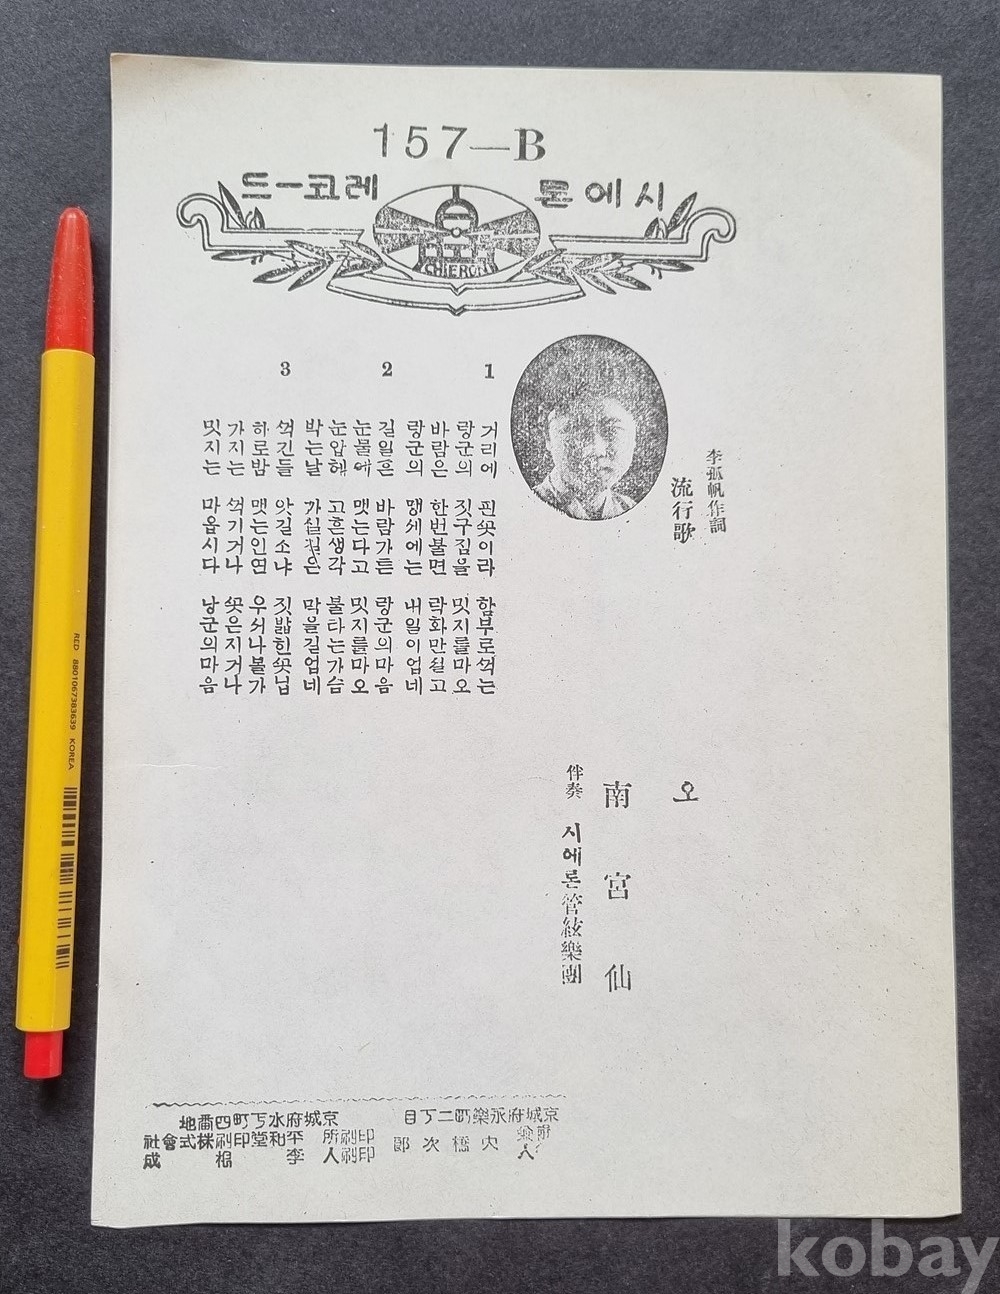 157—B
시에론 레코ー드
CHIERON
李孤帆作詞
流行歌
오
南宮仙
伴奏 시에론管絃樂團
1
거리에 핀ᄭᅩᆺ이라 함부로ᄭᅥᆨ는
랑군의 짓구짐을 밋지를마오
바람은 한번불면 락화만쉴고
랑군의 맹세에는 내일이업네
2
길일흔 바람가튼 랑군의마음
눈물에 맷는다고 밋지를마오
눈압헤 고흔생각 불타는가슴
박는날 가실길은 막을길업네
3
ᄭᅥᆨ긴들 앗길소냐 짓밟힌ᄭᅩᆺ닙
하로밤 맷는인연 우서나볼가
가지는 ᄭᅥᆨ기거나 ᄭᅩᆺ은지거나
밋지는 마옵시다 낭군의마음
京城府永樂町二丁目
人 橋次郞
京城府水下町四番地
印刷所 平和堂印刷株式會社
印刷人 李根成
RED 8801067383639 KOREA
kobay